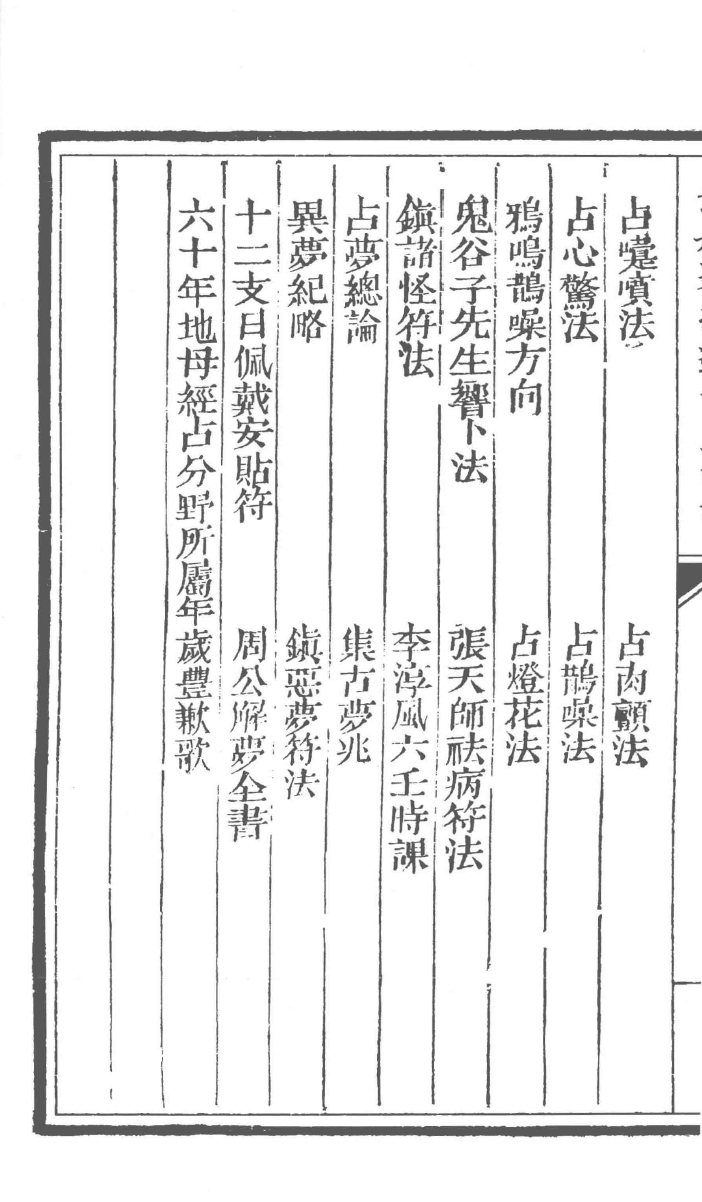 占嚏噴法　占肉顫法
占心驚法　占鵲噪法
鴉鳴鵲噪方向　占燈花法
鬼谷子先生響卜法　張天師祛病符法
鎮諸怪符法　李淳風六壬時課
占夢總論　集古夢兆
異夢紀略　鎮惡夢符法
十二支日佩戴安貼符　周公解夢全書
六十年地母經占分野所屬年歲豐歉歌